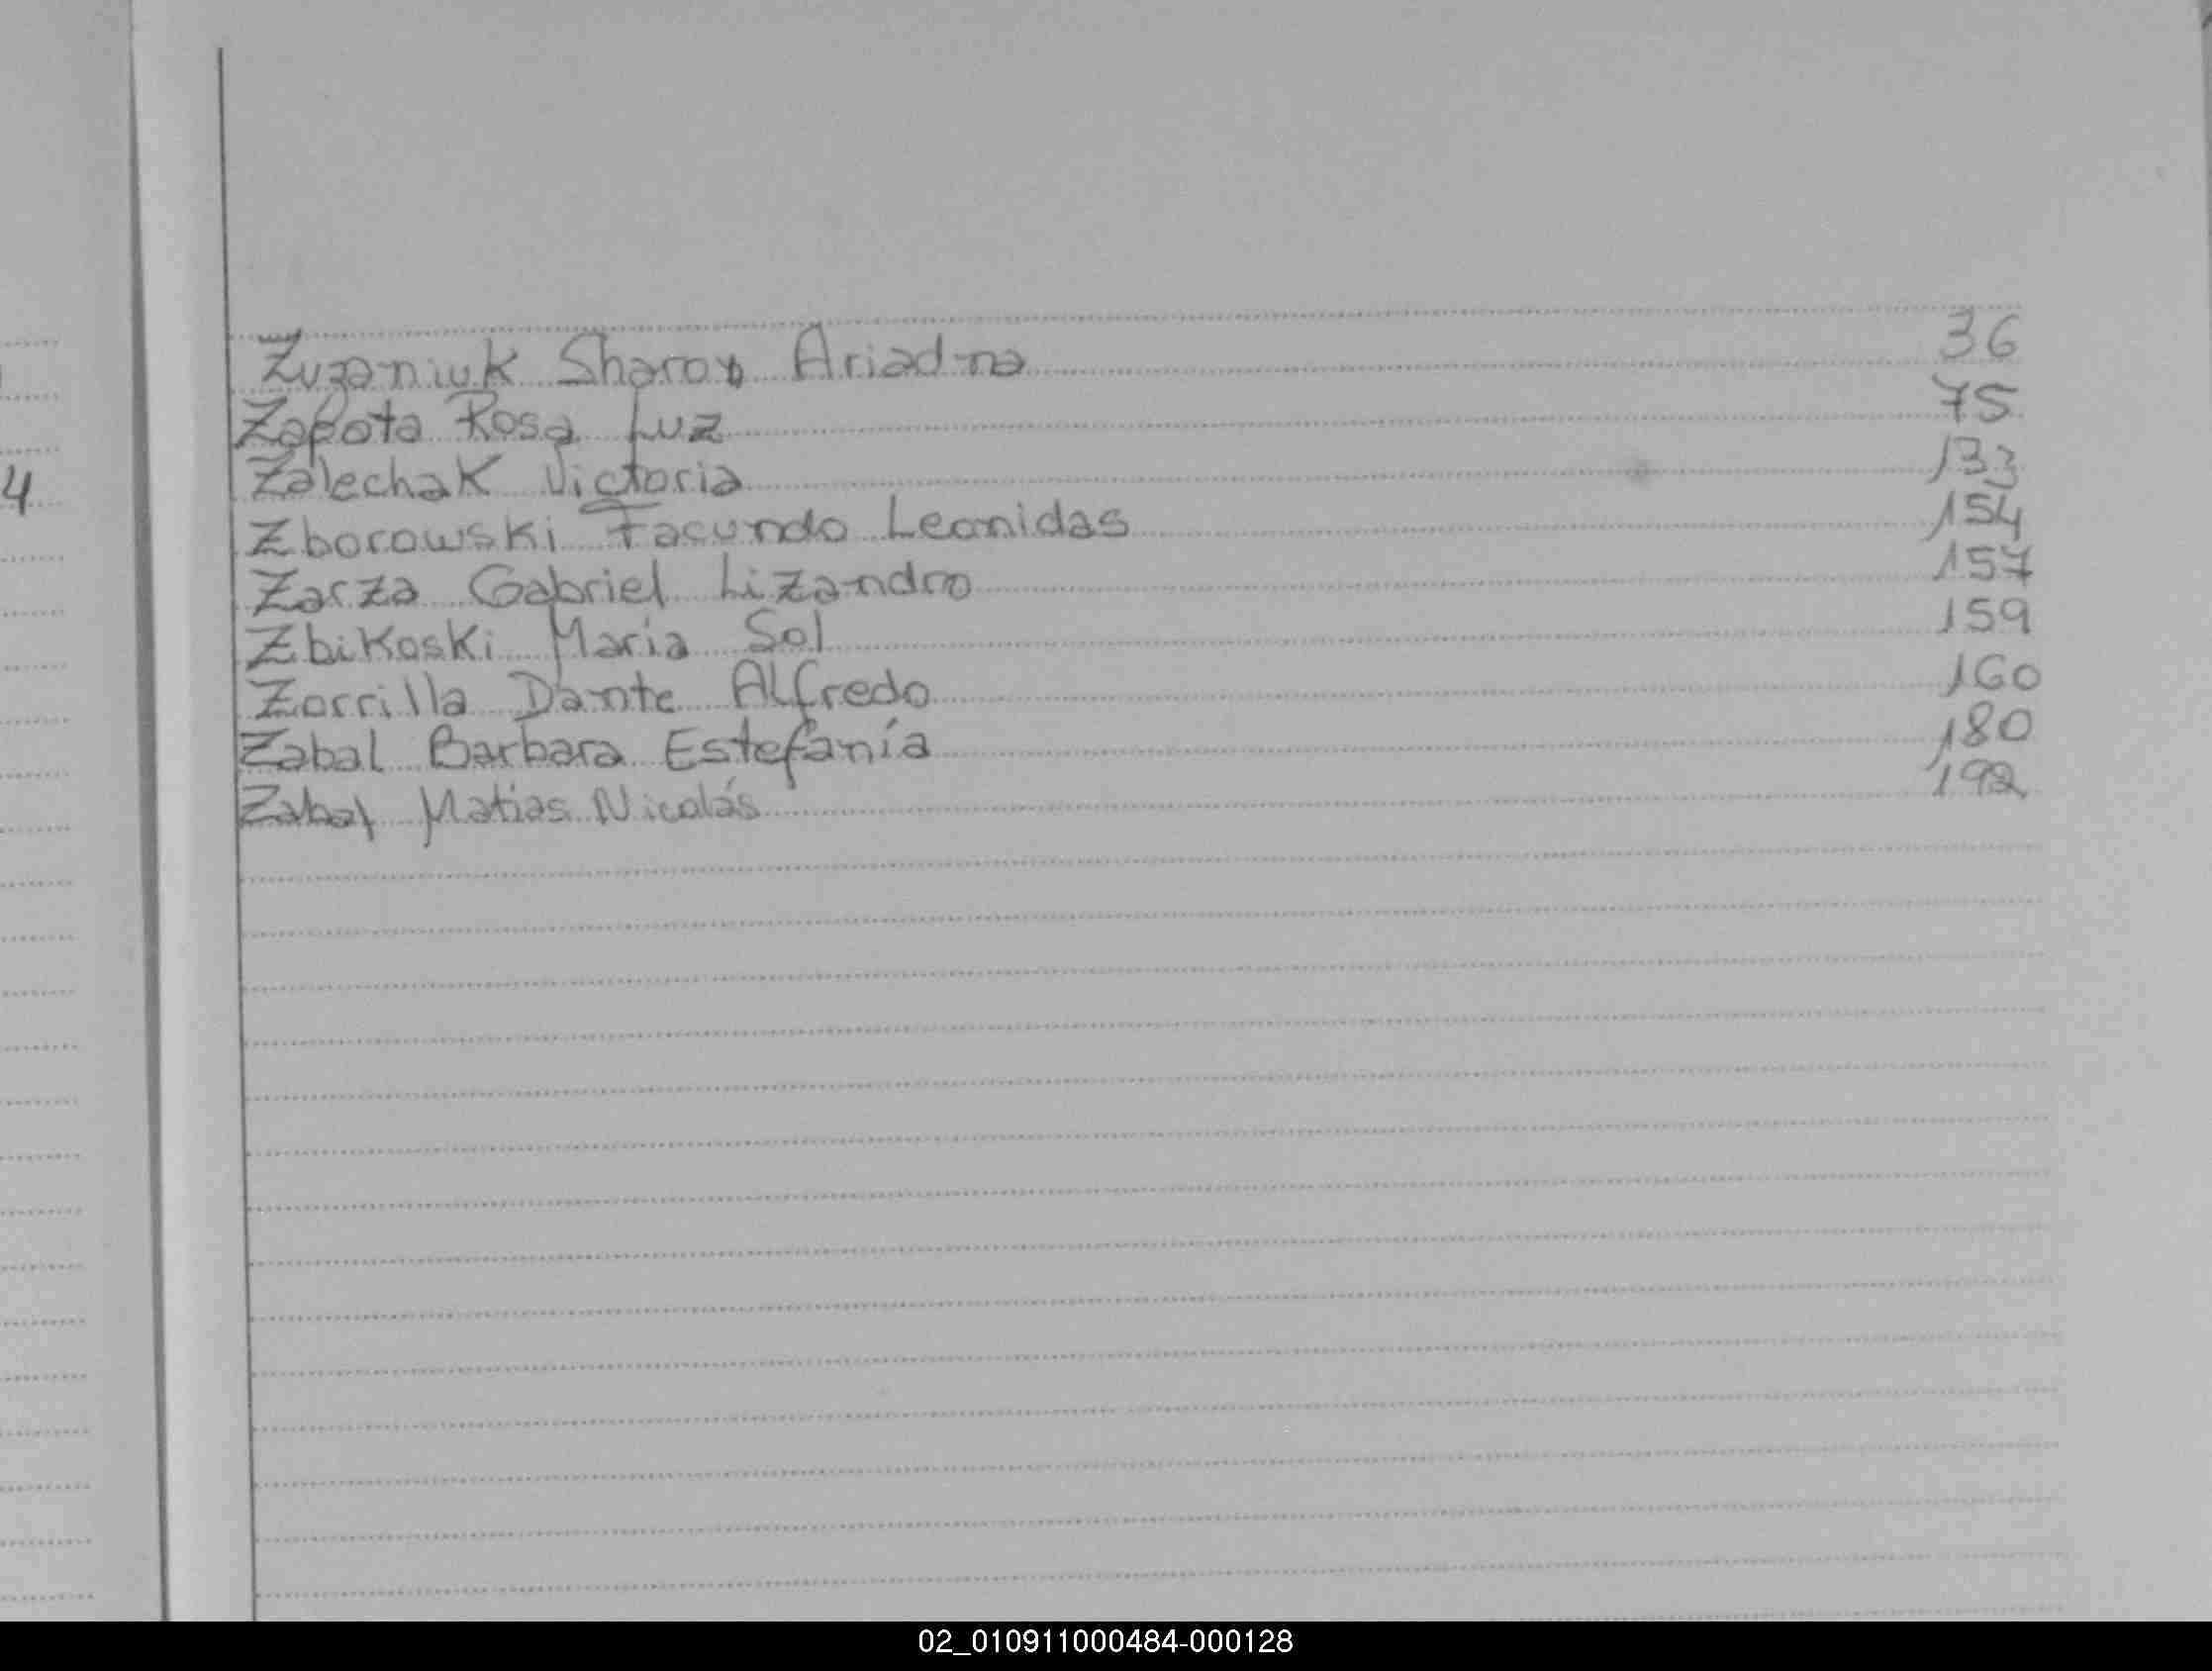 Zuzaniuk Sharon Ariadna 36
Zapota Rosa Luz 75
Zalechak Victoria 133
Zborowski Facundo Leonidas 154
Zarza Gabriel Lizandro 157
Zbikoski Maria Sol 159
Zorrilla Dante Alfredo 160
Zabal Barbara Estefanía 180
Zabal Matias Nicolás 192
4
02_010911000484-000128